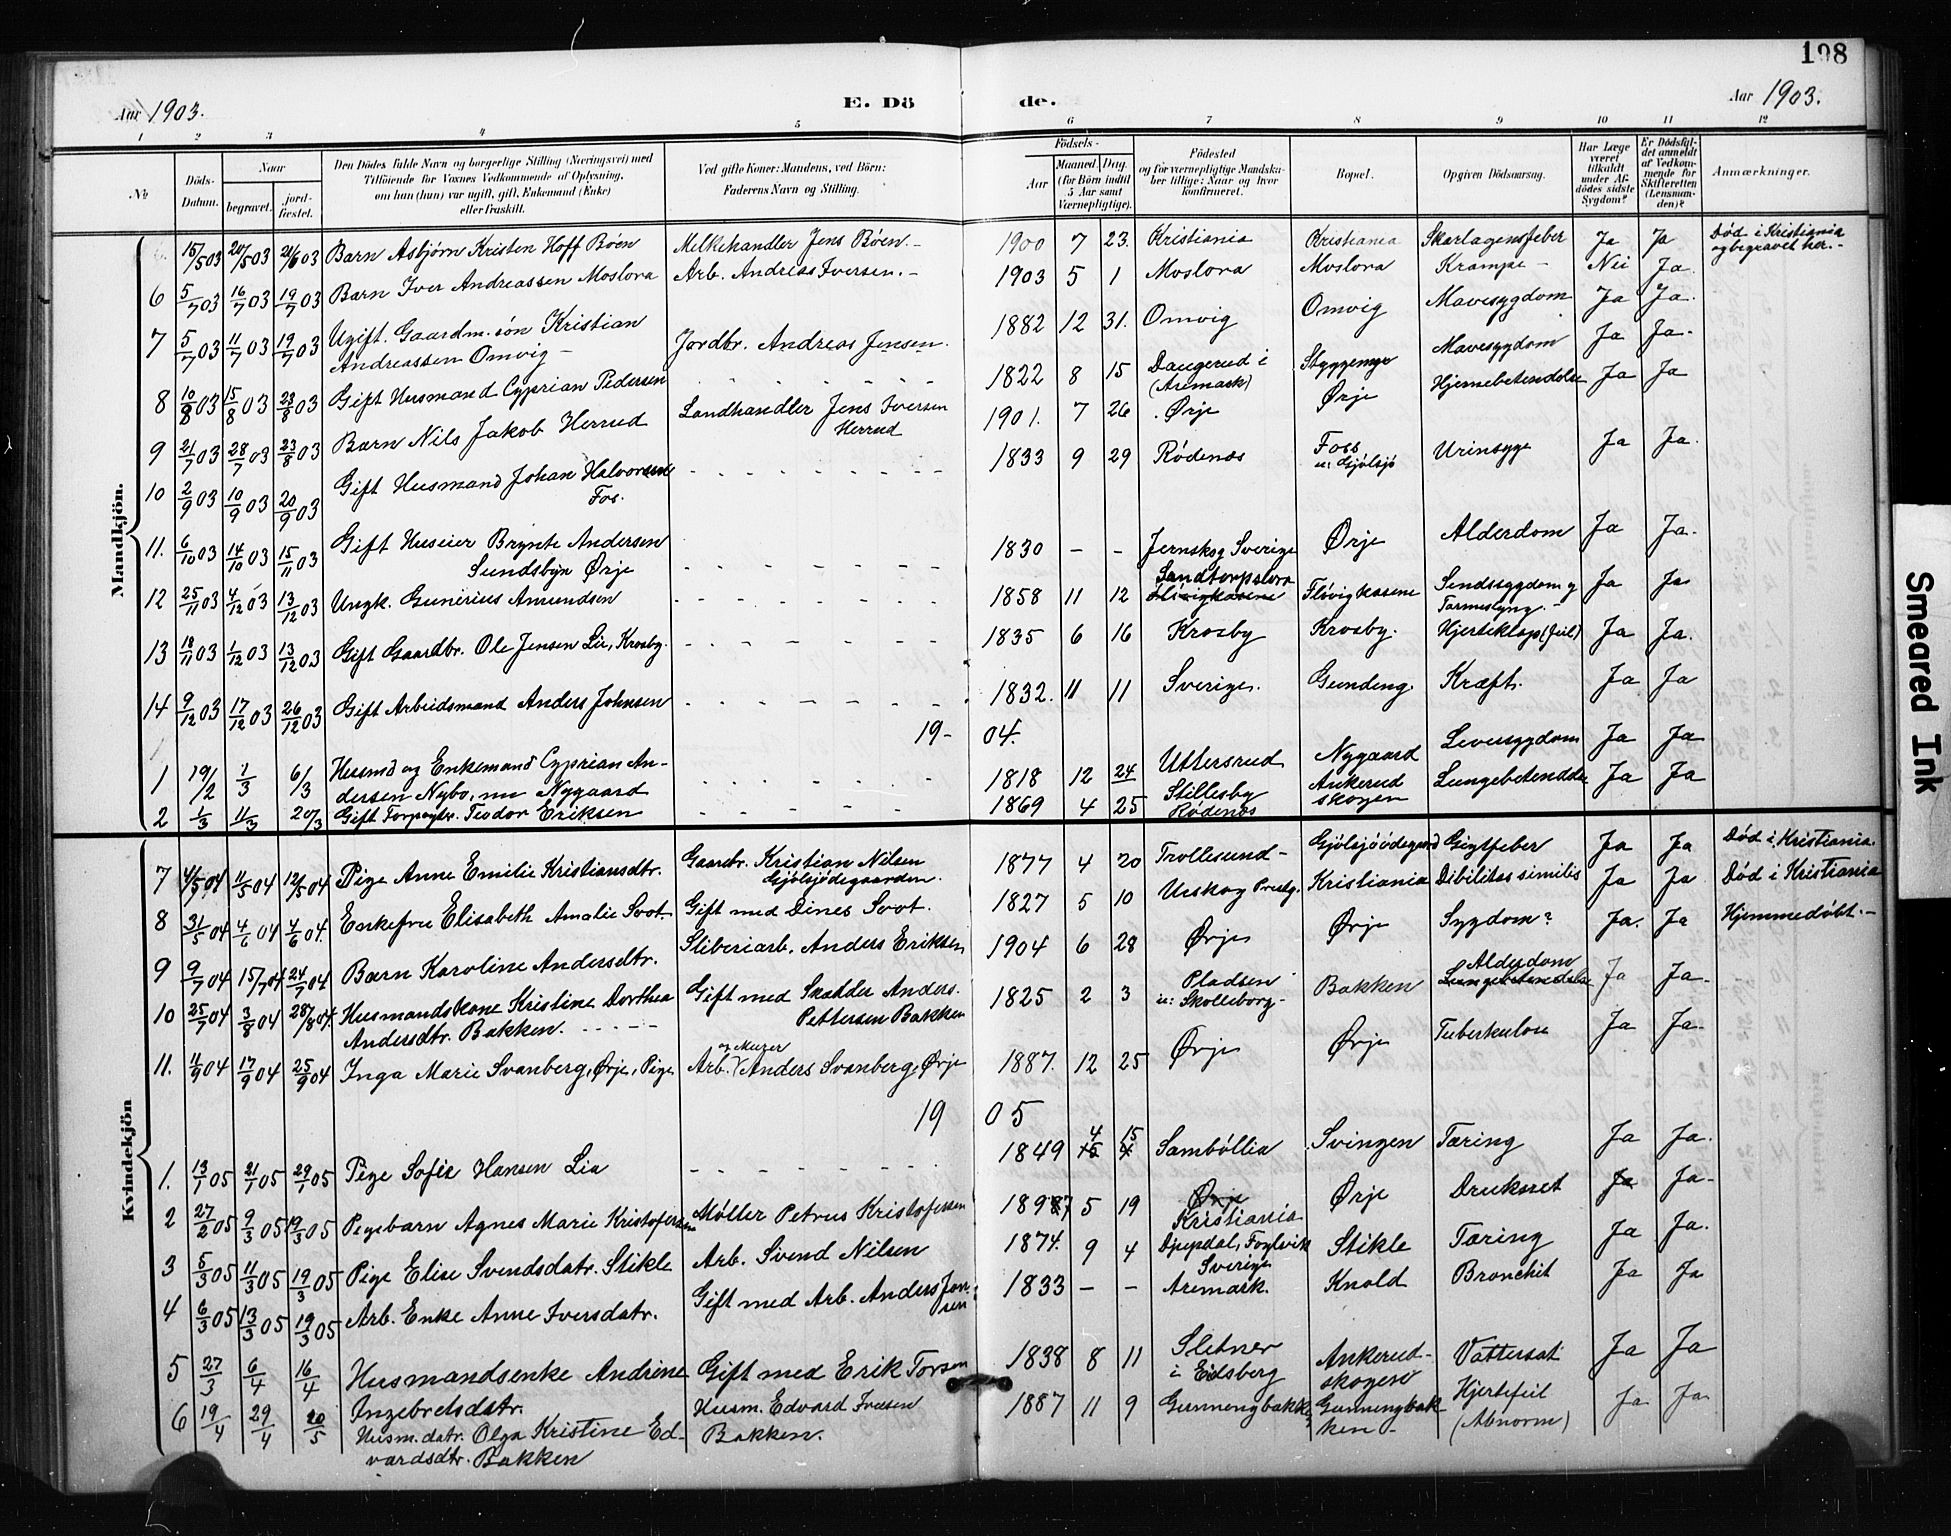 198
Aar 1903.
E. Dö de.
Aar 1903.
1 2 3 4 5 6 7 8 9 10 11 12
No
Döds-Datum.
Naar
begravet.
jord-fæstet.
Den Dödes fulde Navn og borgerlige Stilling (Næringsvei) med
Tilföiende for Voxnes Vedkommende af Oplysning,
om han (hun) var ugift, gift, Enkemand (Enke)
eller fraskilt.
Ved gifte Koner: Mandens, ved Börn:
Faderens Navn og Stilling.
Födsels-
Aar
Maaned. Dag.
(for Börn indtil
5 Aar samt
Værnepligtige).
Födested
og for værnepligtige Mandska-
ber tillige: Naar og hvor
konfirmeret.
Bopæl.
Opgiven Dödsaarsag.
Har Læge
været
tilkaldt
under Af-
dödes sidste
Sygdom?
Er Dödsfal-
det anmeldt
af Vedkom-
mende for
Skifteretten
(Lensman-
den)?
Anmærkninger.
Mandkjön.
15/5 03 20/5 03 21/6 03 Barn Asbjørn Kristen Hoff Bøen Melkehandler Jens Bøen.- 1900 7 23. Kristiania Kristiania Skarlagensfeber Ja Ja Død i Kristiania
og begravet her.-
6 5/7 03 16/7 03 19/7 03 Barn Iver Andreassen Moslora Arb. Andreas Iversen.- 1903 5 1 Moslora Moslora Krampe - Nei Ja.
7 5/7 03 11/7 03 19/7 03 Ugift. Gaardm. søn Kristian
Andreassen Omvig - Jordbr. Andreas Jensen. 1882 12 31. Omvig Omvig Mavesygdom Ja Ja.
8 10/8 03 15/8 03 23/8 03 Gift Husmand Cyprian Pedersen - - - - - - 1822 8 15 Daugerud i
(Aremark) Styggemyr Mavesygdom Ja Ja.
9 21/7 03 28/7 03 23/8 03 Barn Nils Jakob Herrud Landhandler Jens Iversen
Herrud 1901. 7 26 Ørje Ørje Hjernebetendelse Ja Ja
10 2/9 03 10/9 03 20/9 03 Gift Husmand Johan Halvorsen
Fos. - - - - - - - 1833 9 29 Rødenæs Foss
u: Gjølsjø Urinsyge Ja Ja.
11. 6/10 03 14/10 03 15/11 03 Gift Huseier Brynte Andersen
Sundsbyn Ørje - - - - - - - 1830 - - Jernskog Sverige Ørje Alderdom Ja Ja.
12 25/11 03 4/12 03 13/12 03 Ungk. Gunerius Amundsen - - - - - - - 1858 11 12 Sandtorpslora Fløvigkasene Sendssygdom og
Tarmeslyng.- Ja Ja
13 18/11 03 1/12 03 13/12 03 Gift Gaardbr. Ole Jensen Lie, Krosby. - - - - - - - 1835 6 16 Krosby Krosby. Hjerteklap (feil) Ja Ja.
14 9/12 03 17/12 03 26/12 03 Gift Arbeidsmand Anders Johnsen - - - - - - - 1832. 11 11 Sverige. Gundeng. Kræft. Ja Ja
19- 04.
1 19/2 1/3 6/3 Husmd og Enkemand Cyprian An-
dersen Nybo, nu Nygaard - - - - - - 1818 12 24 Uttersrud Nygaard Leversygdom Ja Ja
2 1/3 11/3 20/3 Gift Forpagtr. Teodor Eriksen - - - - - 1869 4 25 Stillesby
Rødenæs Ankerud
skogen Lungebetendelse Ja Ja
Kvindekjön
7 4/5 04 11/5 04 12/5 04 Pige Anne Emilie Kristiansdtr. Gaardbr. Kristian Nilsen
Gjølsjødegaarden. 1877 4 20 Trollesund- Gjølsjøødegaard Gigtfeber Ja Ja Død i Kristiania.
8 31/5 04 4/6 04 4/6 04. Enkefru Elisabeth Amalie Svot. Gift med Dines Svot. 1827 5 10 Urskog Prestg. Kristiania Dibilitas similis Ja Ja Død i Kristiania
9 9/7 04 15/7 04 24/7 04 Barn Karoline Andersdtr. Sliberiarb. Anders Eriksen 1904 6 28 Ørje Ørje Sygdom? Ja. Ja Hjemmedøbt.-
10 25/7 04 3/8 04 28/8 04. Husmandskone Kristine Dorthea
Andersdtr. Bakken. - - - - - Gift med Skrædder Anders.
Pettersen Bakken 1825 2 3 Pladsen
u: Skolleborg- Bakken Alderdom
Lungebetendelse Ja Ja-
11. 11/9 04 17/9 04 25/9 04 Inga Marie Svanberg, Ørje, Pige Arb. og Murer Anders Svanberg, Ørje 1887. 12 25 Ørje Ørje Tuberkulose Ja Ja-
19 05
1. 13/1 05 21/1 05 29/1 05 Pige Sofie Hansen Lia - - - - - - - 1849 4 15 Sambøllia Svingen Tæring Ja Ja.
2 27/2 05 9/3 05 19/3 05 Pigebarn Agnes Marie Kristofersen Møller Petrus Kristofersen 1897 5 19 Ørje
Kristiania Ørje Druknet Ja Ja-
3 5/3 05 11/3 05 19/3 05 Pige Elise Svendsdatr. Stikle Arb. Svend Nilsen 1874. 9 4 Djupedal, Foglvik
Sverige Stikle Tæring Ja Ja.
4 6/3 05 13/3 05 19/3 05 Arb. Enke Anne Iversdatr. Gift med Arb. Anders Jon-
sen 1833 - - Aremark. Knold Bronchit Ja Ja
5 27/3 6/4 16/4 Husmandsenke Andrine
Ingebretsdatr. Gift med Erik Torsen 1838 8 11 Slitner
i Eidsberg Ankerud-
skogen Vattersot Ja Ja
6 19/4 29/4 20/5 Husm. datr. Olga Kristine Ed-
vardsdtr. Bakken Husm. Edvard Iversen
Bakken. 1887 11 9 Gunnengbakken Gunnengbak-
ken- Hjertefeil
(Abnorm) Ja Ja
Smeared Ink